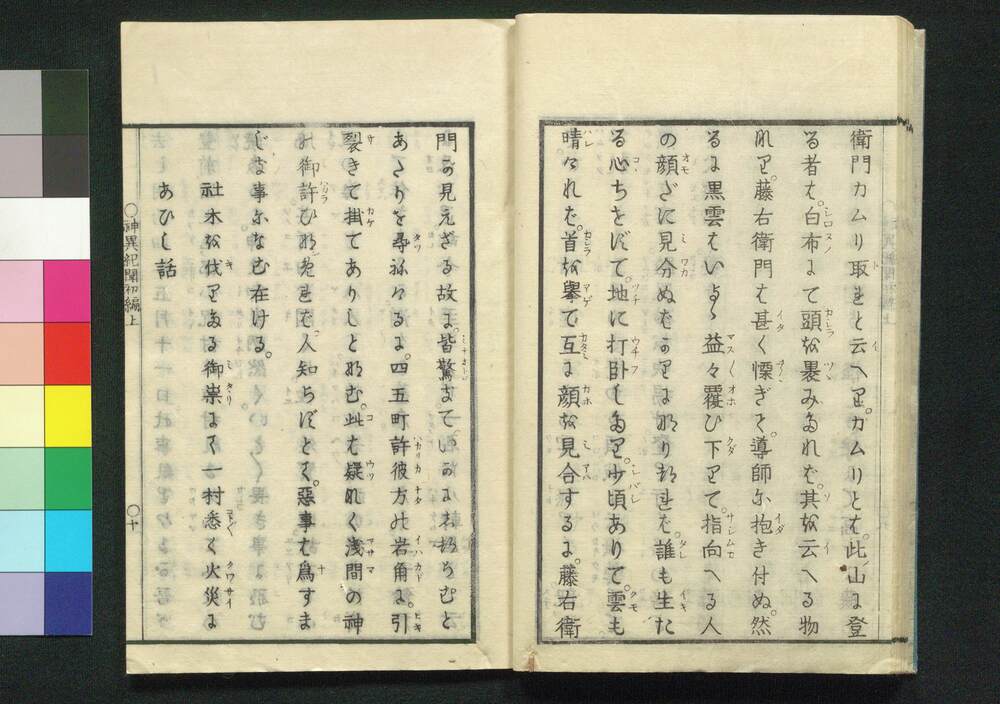 衛門カムリ取れと云へり。カムリとは。此山に登
る者は。白布にて頭を裹みたれば。其を云へる物
なり。藤右衛門は甚く慄ぎて。導師に抱き付ぬ。然
るに黒雲はいよゝ益々覆ひ下りて。指向へる人
の顔だに見分ぬばかりになりければ。誰も生た
る心ちをせで。地に打臥したり。少頃ありて。雲も
晴たれば。首を擧て互に顔を見合するに。藤右衛
門が見えざる故に。皆驚きていかになりけむと
あたりを尋ねけるに。四五町許彼方の岩角に。引
裂きて掛てありしとなむ。此は疑なく浅間の神
の御許ひなければ。人知らずとて。惡事は爲すま
じき事になむ在ける。
社木を伐りたる御祟にて一村悉く火災に
あひし話
○神異紀聞初編上
○十